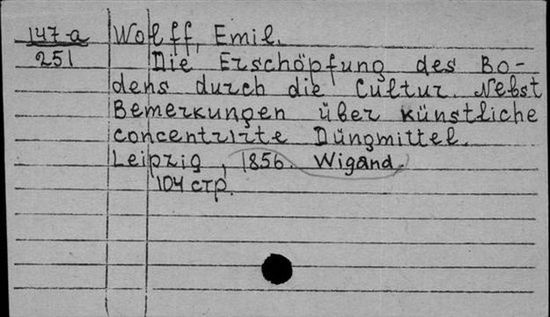 147-a
251
Wolff, Emil.
Die Erschöpfung des Bo-
dens durch die Cultur. Nebst
Bemerkungen über künstliche
concentrirte Düngmittel.
Leipzig, 1856. Wigand.
104 стр.